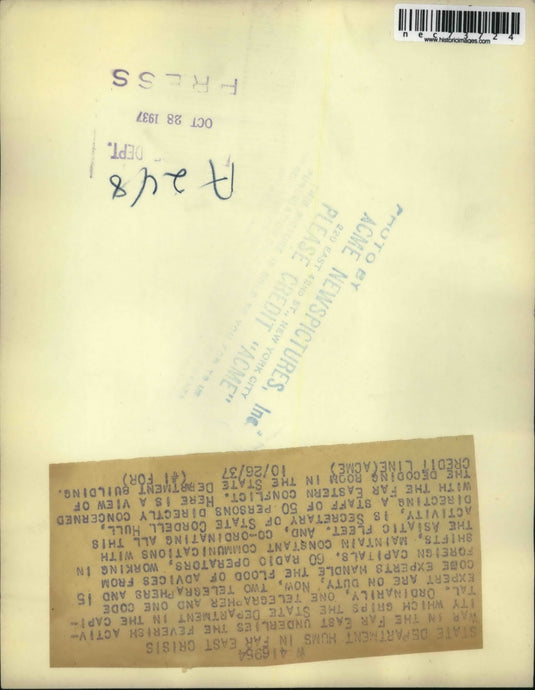 nec73724
www.historicimages.com
PRESS
OCT 28 1937
DEPT.
A248
PHOTO BY
ACME NEWSPICTURES, Inc.
220 EAST 42ND ST., NEW YORK CITY
PLEASE CREDIT "ACME"
W 416954
STATE DEPARTMENT HUMS IN FAR EAST CRISIS
WAR IN THE FAR EAST UNDERLIES THE FEVERISH ACTIV-
ITY WHICH GRIPS THE STATE DEPARTMENT IN THE CAPI-
TAL. ORDINARILY, ONE TELEGRAPHER AND ONE CODE
EXPERT ARE ON DUTY. NOW, TWO TELEGRAPHERS AND 15
CODE EXPERTS HANDLE THE FLOOD OF ADVICES FROM
FOREIGN CAPITALS. 60 RADIO OPERATORS, WORKING IN
SHIFTS, MAINTAIN CONSTANT COMMUNICATIONS WITH
THE ASIATIC FLEET. AND, CO-ORDINATING ALL THIS
ACTIVITY, IS SECRETARY OF STATE CORDELL HULL,
DIRECTING A STAFF OF 50 PERSONS DIRECTLY CONCERNED
WITH THE FAR EASTERN CONFLICT. HERE IS A VIEW OF
THE DECODING ROOM IN THE STATE DEPARTMENT BUILDING.
CREDIT LINE(ACME) 10/26/37 (#1 FOR)